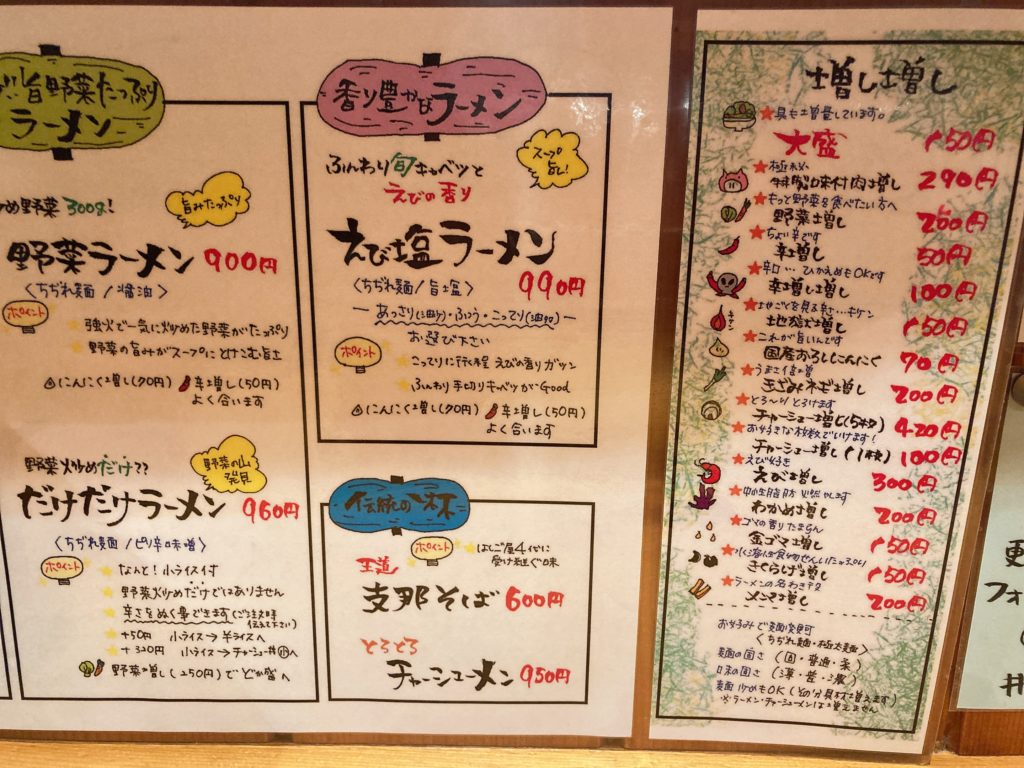 旨野菜たっぷり
ラーメン
旨みたっぷり
野菜300g!
野菜ラーメン 900円
〈ちぢれ麺/醤油〉
ポイント
強火で一気に炒めた野菜がたっぷり
野菜の旨みがスープにとけこむ旨さ
にんにく増し(70円) 辛増し(50円)
よく合います
野菜炒めだけ??
野菜の山
発見
だけだけラーメン 960円
〈ちぢれ麺/ピリ辛味噌〉
ポイント
なんと!小ライス付
野菜炒めだけではありません
辛さをぬく事できます(ご注文時
伝え下さい)
+50円 小ライス→半ライスへ
+320円 小ライス→チャーシュー丼小へ
野菜増し(250円)でどか盛へ
香り豊かなラーメン
ふんわり旬キャベツと
えびの香り
スープ
旨し!
えび塩ラーメン
990円
〈ちぢれ麺/旨塩〉
あっさり(油少)・ふつう・こってり(油多)
お選び下さい
ポイント
こってりに行く程えびの香りガツン
ふんわり手切りキャベツがGood
にんにく増し(70円) 辛増し(50円)
よく合います
伝統の一杯
ポイント
はしご屋4代に
受け継ぐ味
王道
支那そば 600円
とろとろ
チャーシューメン 950円
増し増し
具も増量しています。
大盛 150円
極秘
特製味付肉増し 290円
もっと野菜を食べたい方へ
野菜増し 200円
ちょい辛です
辛増し 50円
辛口…ひかえめもOKです
辛増し増し 100円
地ごくを見る辛さ…キケン
キケン
地獄増し 150円
これが旨いんです
国産おろしにんにく 70円
うまさ倍増
きざみネギ増し 200円
とろ〜りとろけます
チャーシュー増し(5枚) 420円
お好きな枚数でいけます!
チャーシュー増し(1枚) 100円
えび好き
えび増し 300円
中性脂肪燃やします
わかめ増し 200円
ゴマの香りたまらん
金ゴマ増し 150円
きくらげ増し 150円
ラーメンの名わきヤク
メンマ増し 200円
お好みで麺変更可
〈ちぢれ麺・極太麺〉
麺の固さ(固・普通・柔)
味の固さ(薄・普・濃)
フォ